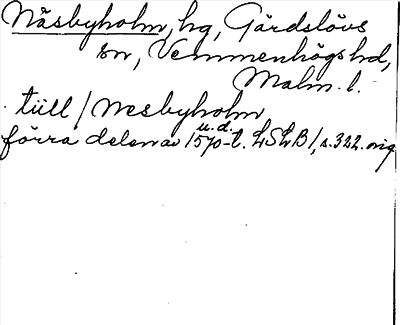 Näsbyholm, hg, Gärdslövs
sn, Vemmenhögs hd,
Malm. l.
till / Nesbyholm
u. d.
förra delen av 1570-t. LSLB 1, s. 322. orig